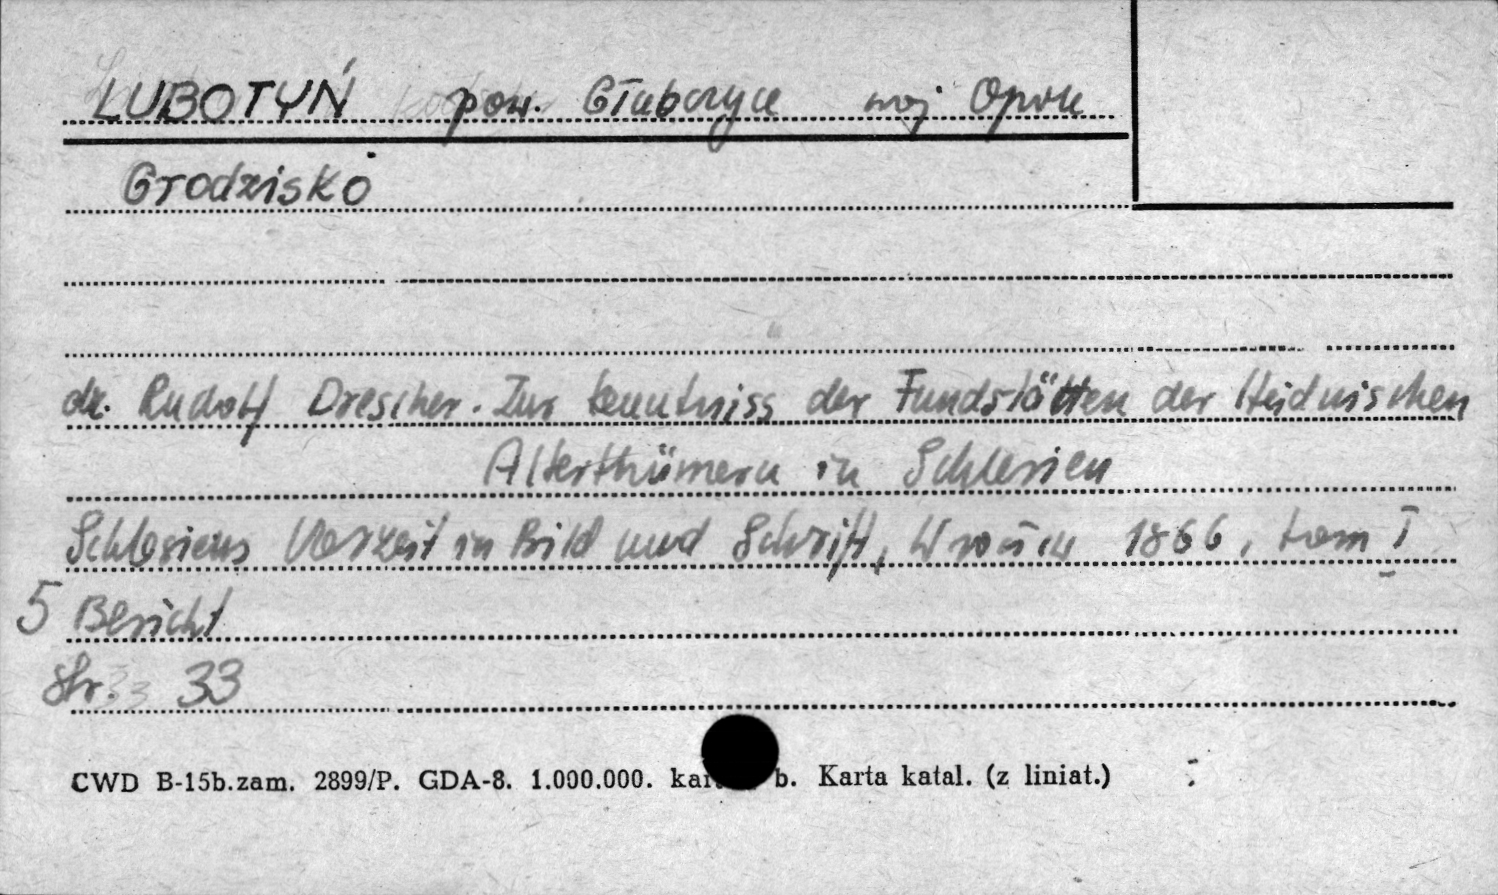 LUBOTYŃ pow. Głubczyce woj Opole
Grodzisko
dr. Rudolf Drescher. Zur kenntniss der Fundstätten der Heidnischen
Alterthümern in Schlesien
Schlesiens Vorzeit in Bild und Schrift, 1866, tom I
5 Bericht
Str. 33
CWD B-15b.zam. 2899/P. GDA-8. 1.000.000. b. Karta katal. (z liniat.)